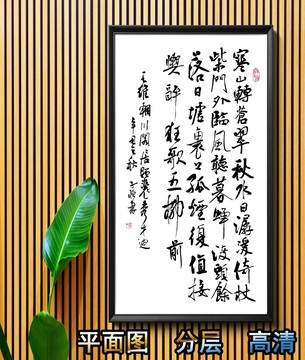 寒山轉蒼翠秋水日潺湲倚杖
柴門外臨風聽暮蟬渡頭餘
落日墟裏上孤煙復值接
輿醉狂歌五柳前
王維輞川閑居贈裴秀才迪
平面图 分层 高清